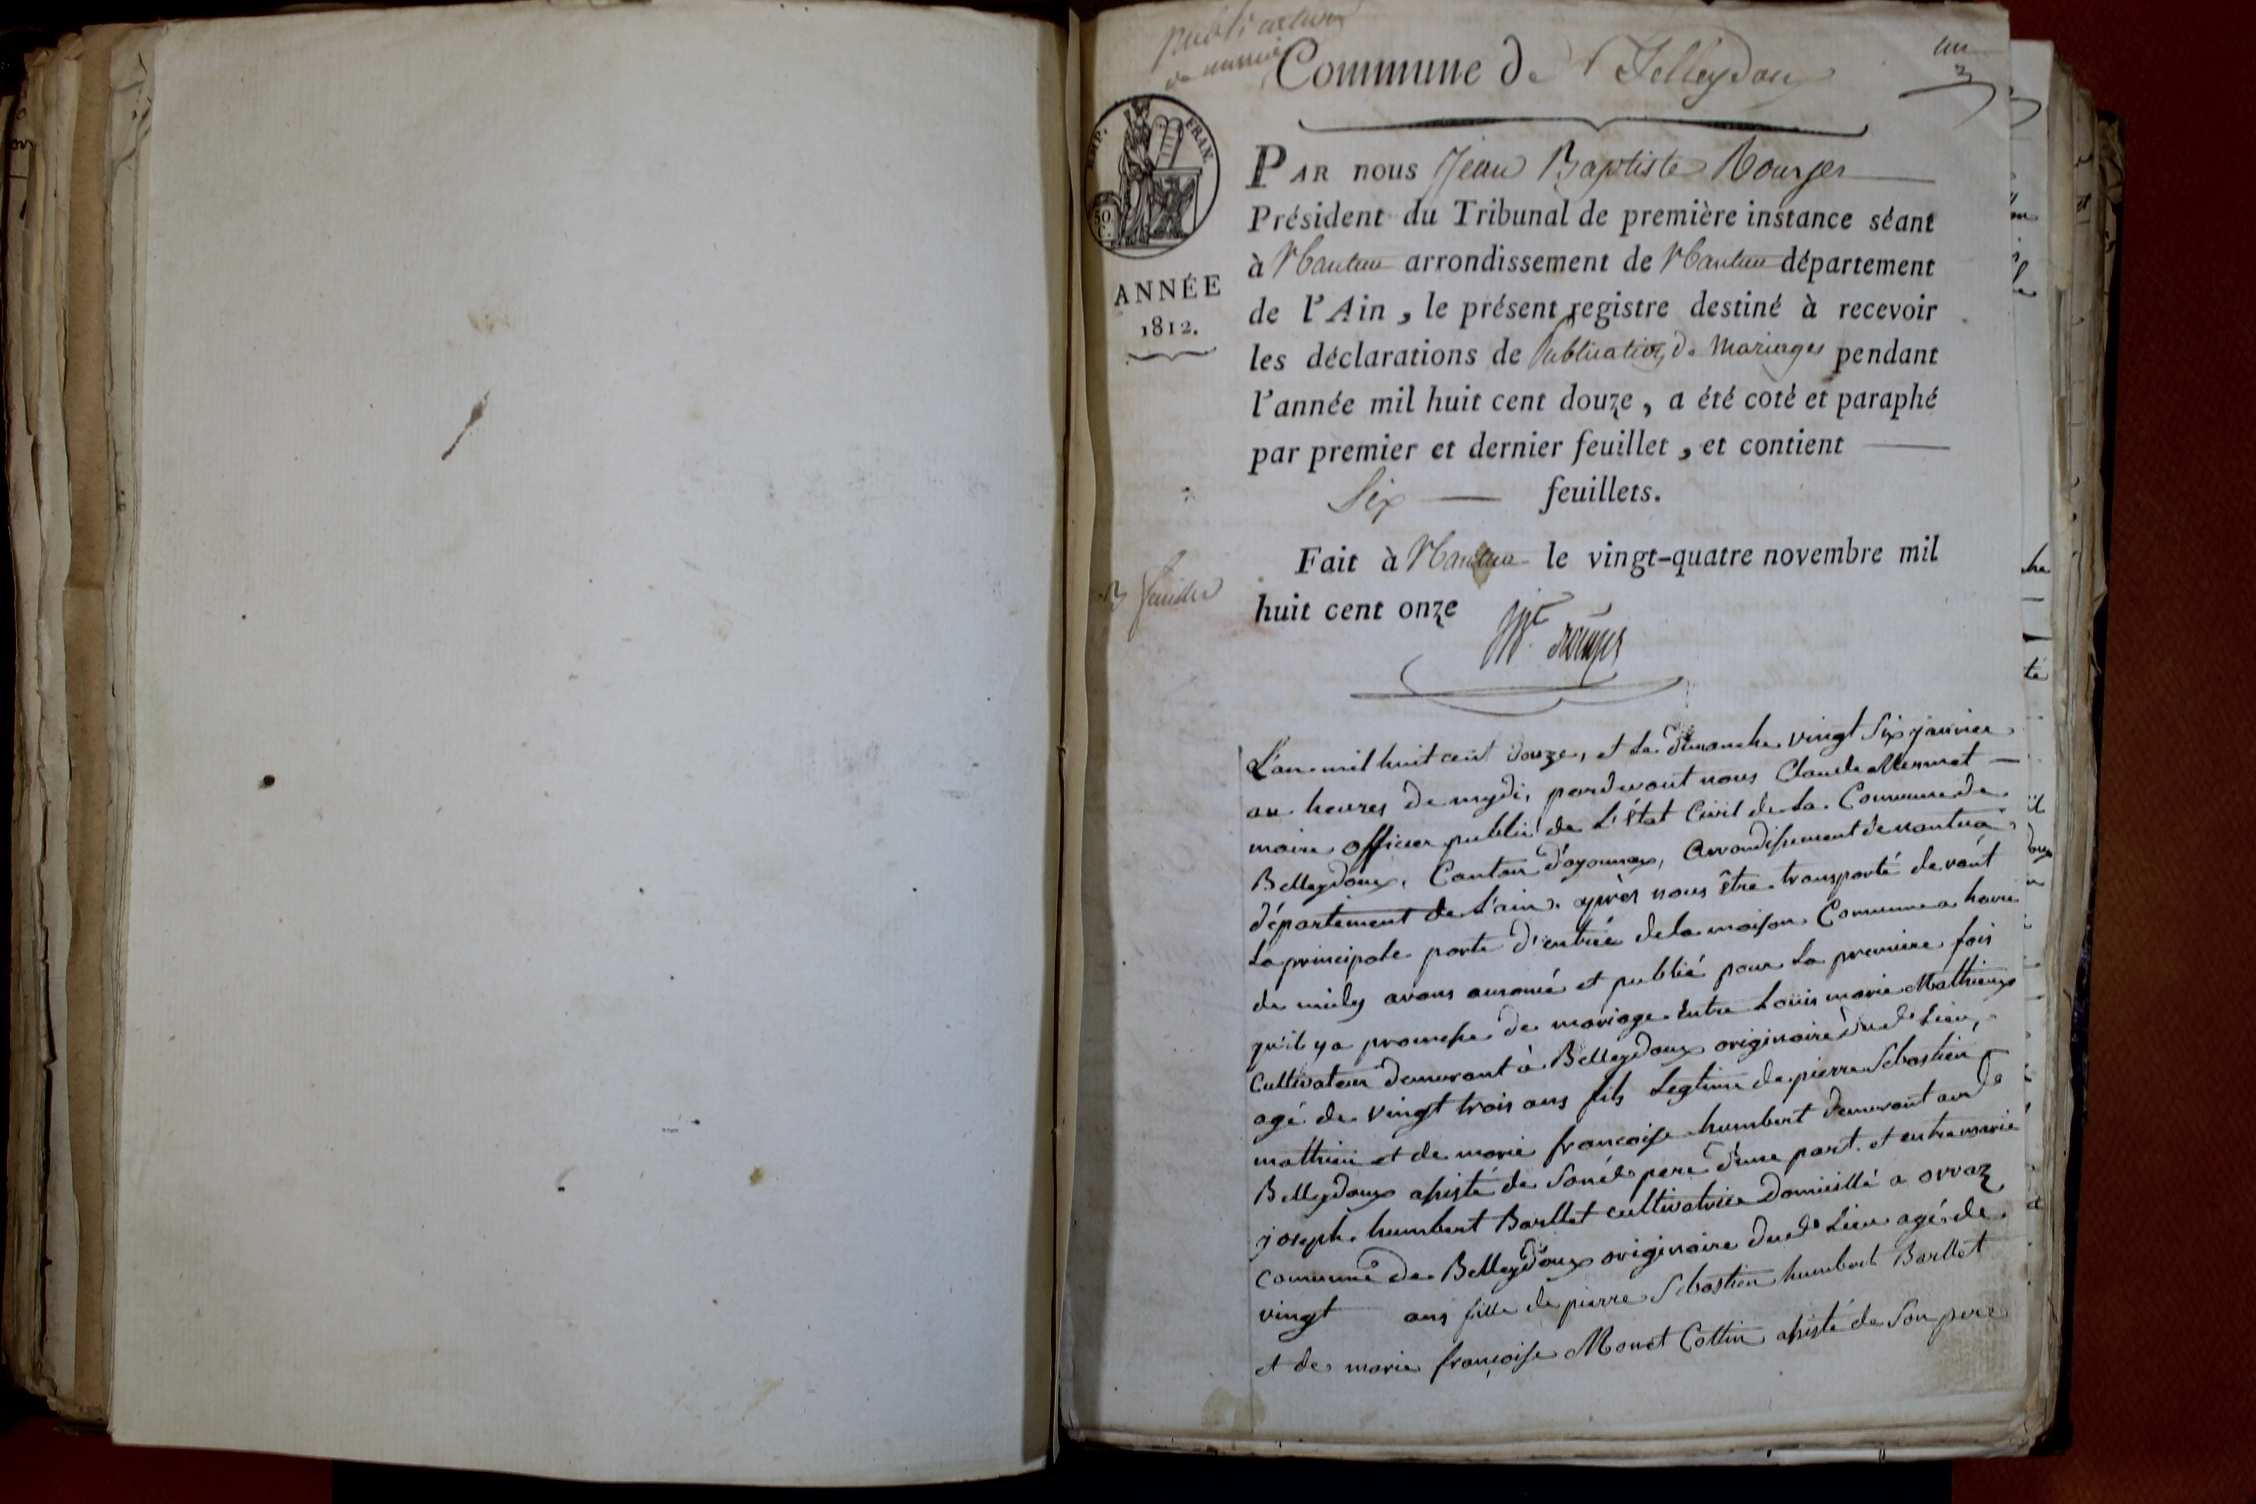 Publication
de mariage
Commune de Belleydoux
un
EMP. FRAN.
50
C.
ANNÉE
1812.
PAR nous Jean Baptiste Rouyer
Président du Tribunal de première instance séant
à Nantua arrondissement de Nantua département
de l'Ain, le présent registre destiné à recevoir
les déclarations de Publication de Mariages pendant
l'année mil huit cent douze, a été coté et paraphé
par premier et dernier feuillet, et contient
Six feuillets.
Fait à Nantua le vingt-quatre novembre mil
huit cent onze
L'an mil huit cent douze, et le dimanche vingt six janvier
au heures de mydi, pardevant nous Claude Mermet
maire officier public de L'état Civil de La Commune de
Belleydoux, Canton d'oyonnax, Arrondissement de nantua
département de L'ain. après nous être transporté devant
La principale porte d'entrée de la maison Commune a heure
de midy avons anoncé et publié pour La premiere fois
qu'il y a promesse de mariage Entre Loüis marie Mathieux
Cultivateur demeurant à Belleydoux originaire dud Lieu,
agé de vingt trois ans fils Legtime de pierre Sebastien
mathieu et de marie francoise humbert demeurant aud
Belleydoux assisté de sond pere d'une part. et entre marie
joseph humbert Barllet cultivatrice domicillé a orvaz
commune de Belleydoux originaire dud Lieu agé de
vingt ans fille de pierre Sebastien humbert Barllet
et de marie françoise Monet Cottin assisté de Son pere